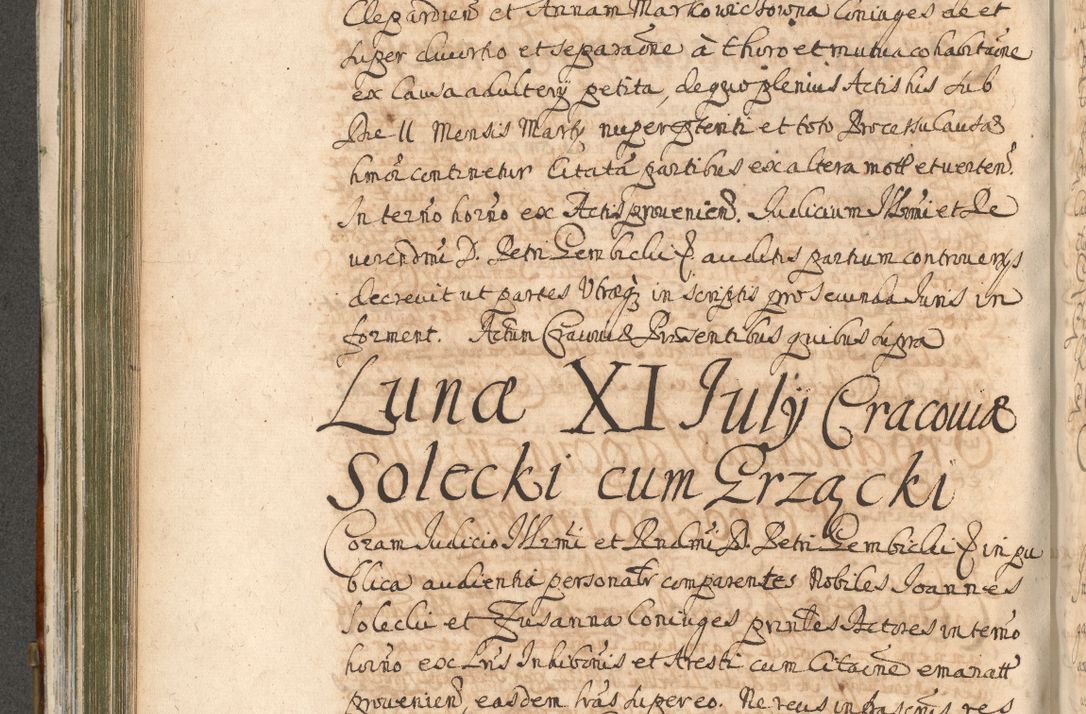 Clepardien̄ et Annam Markowiczowna Coniuges de et
super divortio et separaōne à thoro et mutua cohabitaōne
ex causa adulterÿ petita, de quo plenius Actis his sub
Die 11 Mensis Martÿ nuper ptenti et toto Processu causæ
hm̄oi continetur Citatā partibus ex altera mott et verten̄.
In term̄o horn̄o ex Actis provenien̄. Iudicium Illrm̄i et Re
verendm̄i D. Petri Gembicki P auditis partium controversÿs
decrevit ut partes Utræq̨ in scriptis pro secunda Iuris in
forment. Actum Cracoviæ Præsentibus quibus supra
Lunæ XI Julÿ Cracoviæ
Solecki cum Grządcki
Coram Iudicio Illrm̄i et Rndm̄i D. Petri Gembicki P in pu
blica audientia personalr comparentes Nobiles Ioannes
Solecki et Zusanna Coniuges prin̄les Actores in term̄o
horn̄o ex Lrīs Inhibōnis et Aresti cum Citaōne emanatt
provenien̄, easdem lrās super eo. Ne reus infrascrīs res